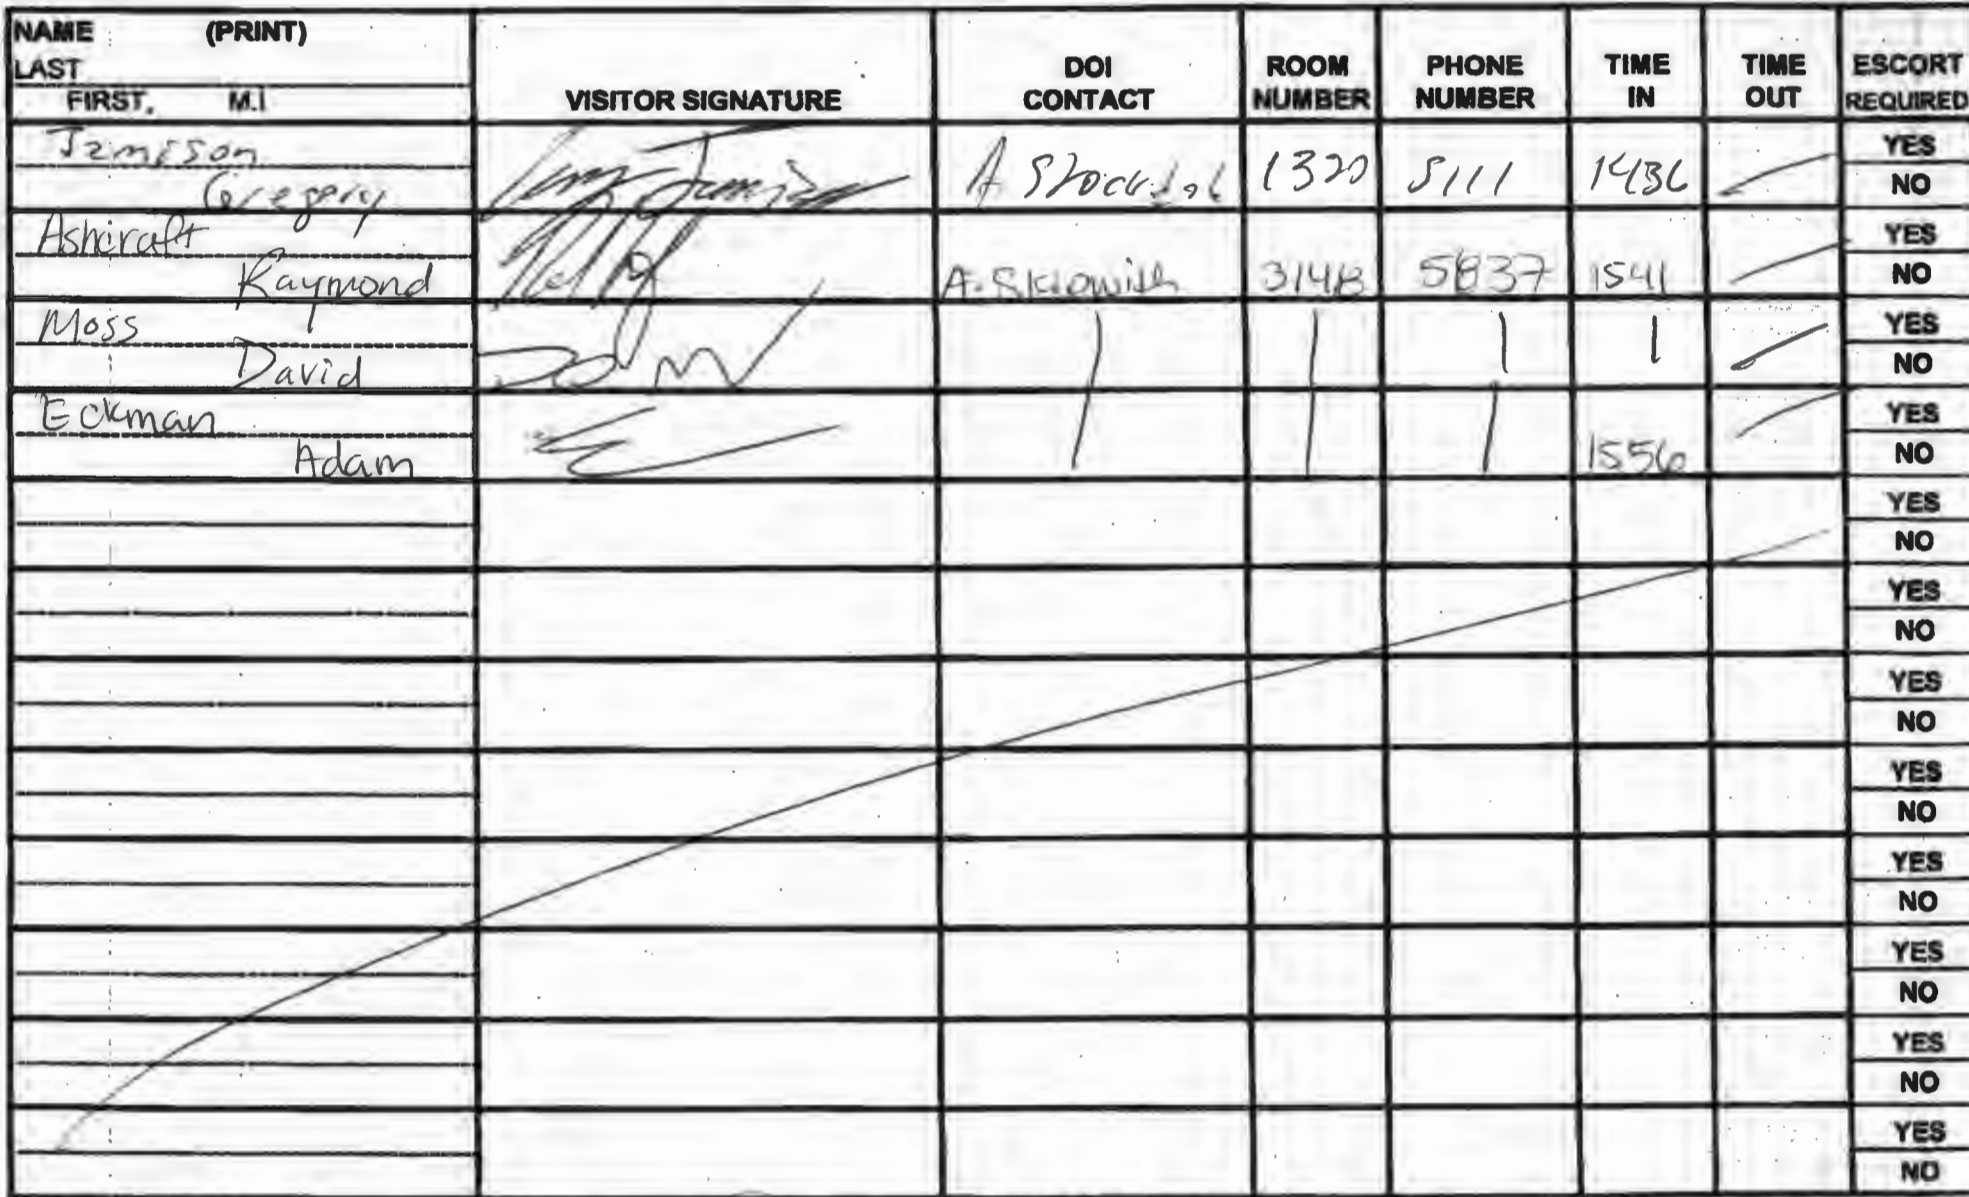 NAME (PRINT)
LAST
FIRST, M.I
VISITOR SIGNATURE
DOI CONTACT
ROOM NUMBER
PHONE NUMBER
TIME IN
TIME OUT
ESCORT REQUIRED
Jamison
Gregory
A 1320 5111 1436
YES
NO
Ashcraft
Raymond
A. 5837 1541
YES
NO
Moss
David
YES
NO
Eckman
Adam
1556
YES
NO
YES
NO
YES
NO
YES
NO
YES
NO
YES
NO
YES
NO
YES
NO
YES
NO